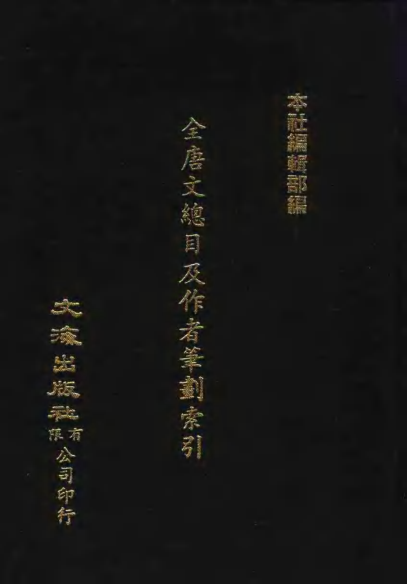 本社編輯部編
全唐文總目及作者筆劃索引
文海出版社有限公司印行